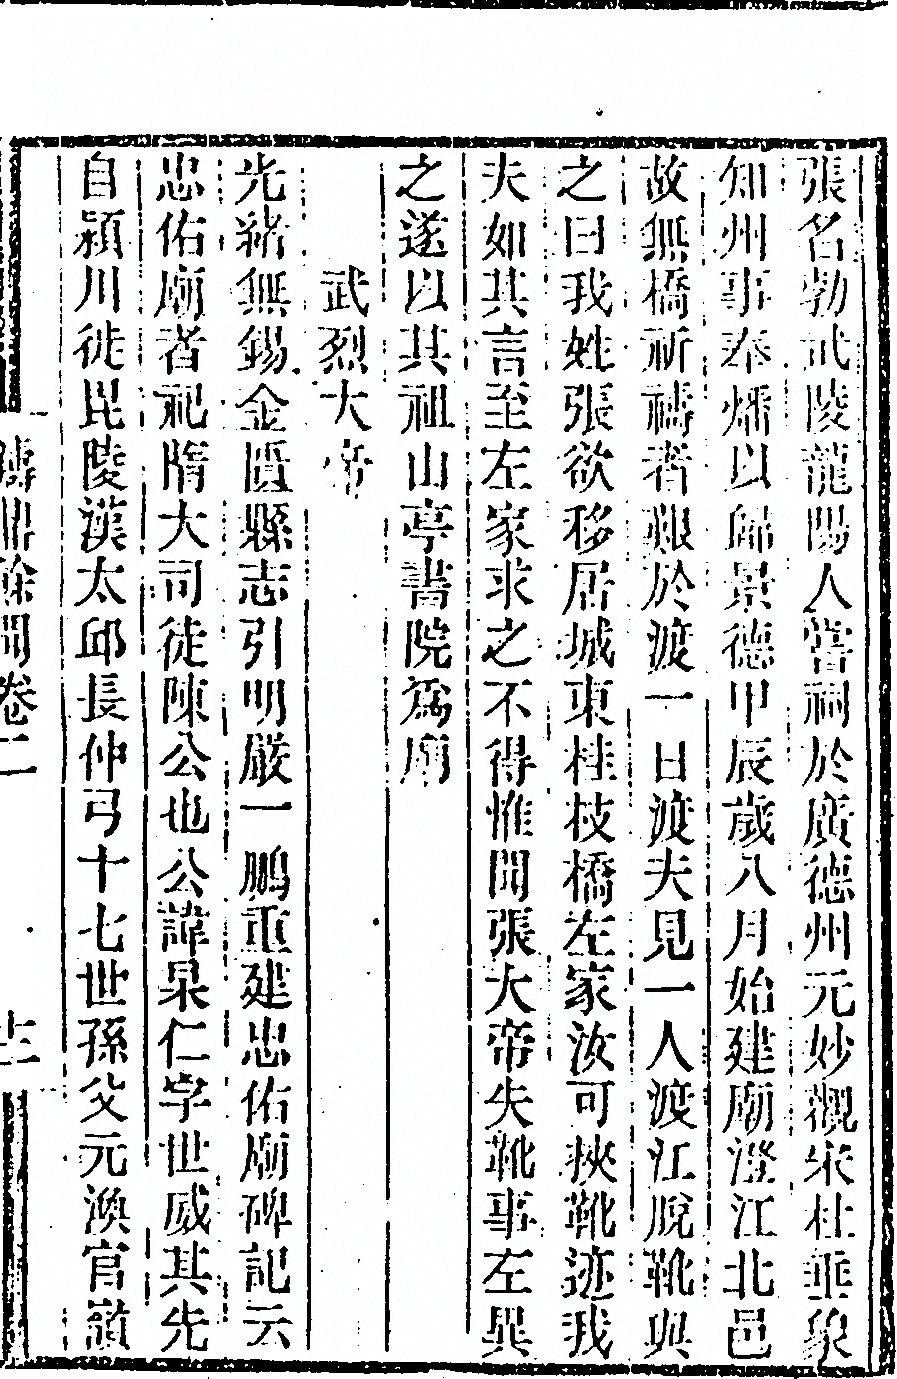 張名勃武陵龍陽人嘗祠於廣德州元妙觀宋杜垂象
知州事奉燔以歸景德甲辰歲八月始建廟澄江北邑
故無橋祈禱者艱於渡一日渡夫見一人渡江脫靴與
之曰我姓張欲移居城東桂枝橋左家汝可挾靴迹我
夫如其言至左家求之不得惟聞張大帝失靴事左異
之遂以其祖山亭書院爲廟
武烈大帝
光緒無錫金匱縣志引明嚴一鵬重建忠佑廟碑記云
忠佑廟者祀隋大司徒陳公也公諱杲仁字世威其先
自潁川徙毘陵漢太邱長仲弓十七世孫父元渙官嶺
鑄鼎餘聞卷二